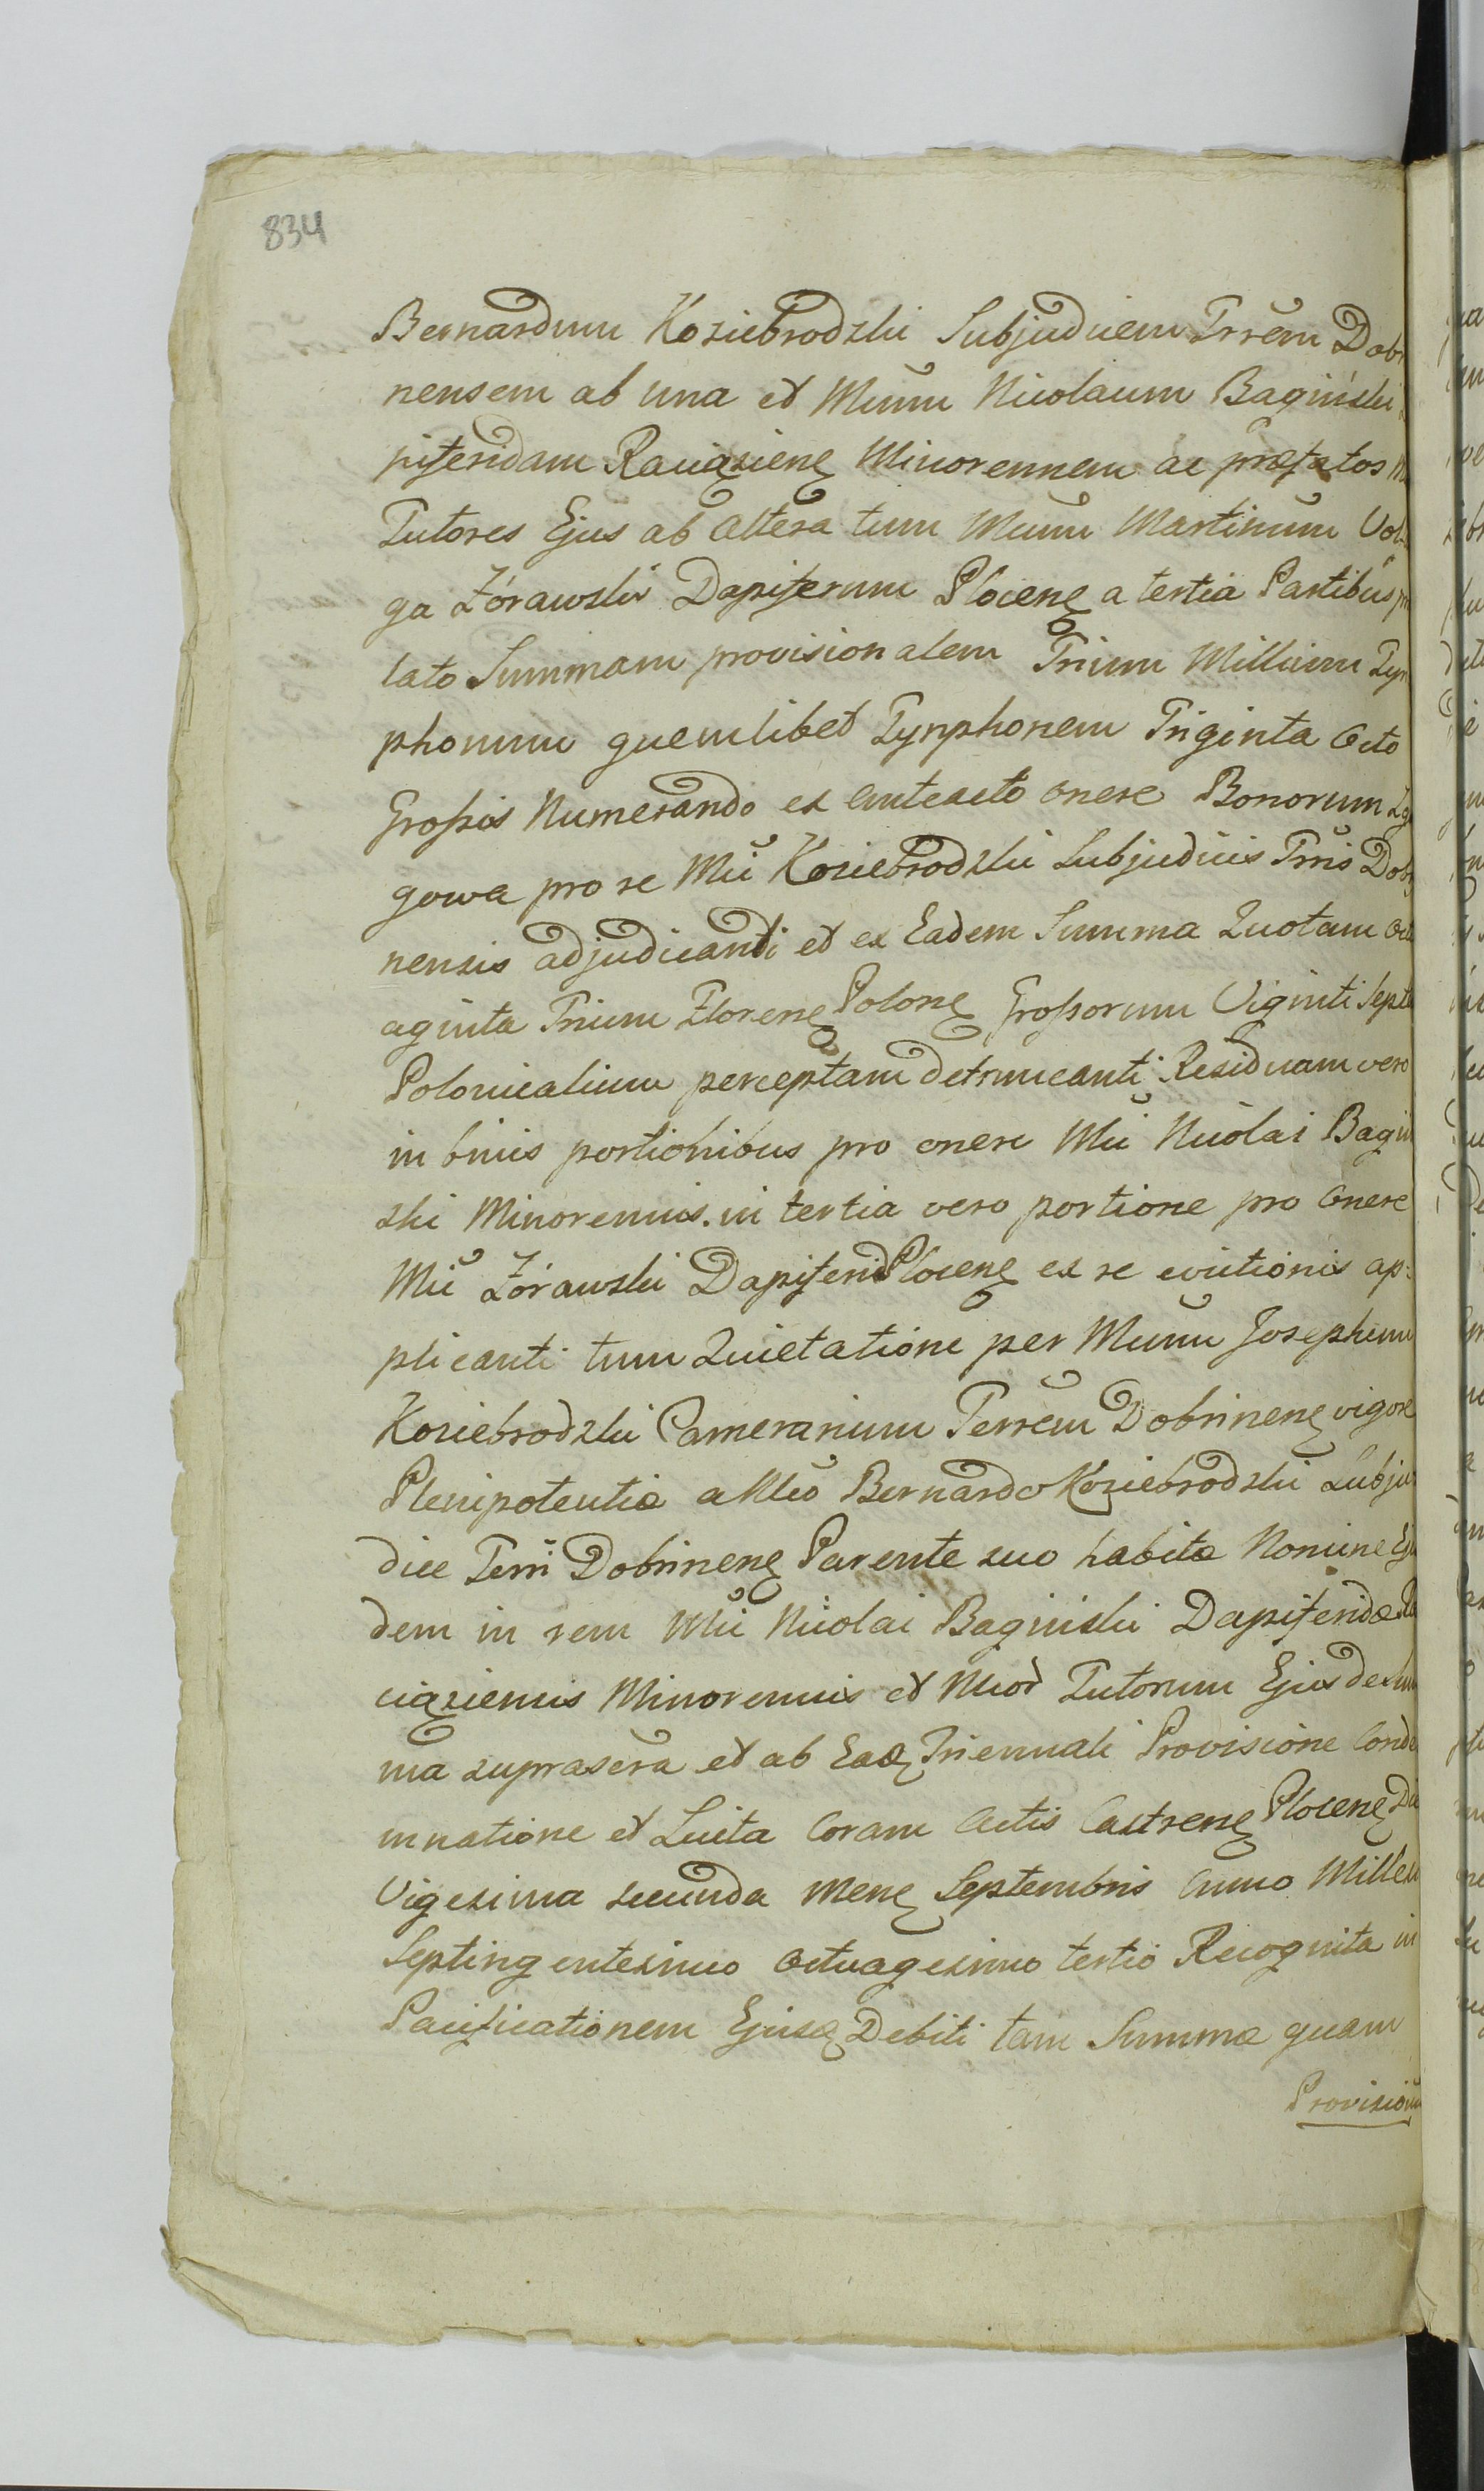 834
Bernardum Koziebrodzki Subjudicem Trrem Dobr
nensem ab una et Mnum Nicolaum Baginski
piferidam Raciązienę Minorennem ac præfatos M
Tutores Ejus ab altera tum Mnum Martinum Vol
ga Zórawski Dapiferum Plocenę a tertia Partibus
lato Summam provisionalem Trium Millium Tyn
phonum quemlibet Tynphonem Triginta Octo
Grossis Numerando ex anteacto onere Bonorum
gowa pro se Mci Koziebrodzki Subjudicis Trris Dobrz
nensis adjudicandi et ex Eadem Summa Quotam Oct
aginta Trium Florenę Polonę Grossorum Viginti Septe
Polonicalium perceptam detruncanti Residuam vero
in binis portionibus pro onere Mci Nicolai Bagin
ski Minorennis. in tertia vero portione pro Onere
Mci Zórawski Dapiferi Plocenę ex re evictionis ap:
plicanti tum Quietatione per Mnum Josephum
Koziebrodzki Camerarium Terrem Dobrinenę vigore
Plenipotentiæ a Mco Bernardo Koziebrodzki Subju:
dice Terri Dobrinenę Parente suo habitæ Nomine Ej
dem in rem Mci Nicolai Baginski Dapiferidæ Ra
ciąziensis Minorennis et Mcor Tutorum Ejus de Sum
ma suprasera et ab Eadę Triennali Provisione Conde
mnatione et Lucta Coram Actis Castrenę Plocenę Die
Vigesima secunda Menę Septembris Anno Millesi
Septingentesimo Octuagesimo tertio Recognita in
Pacificationem Ejusdę Debiti tam Summæ quam
Provisionu